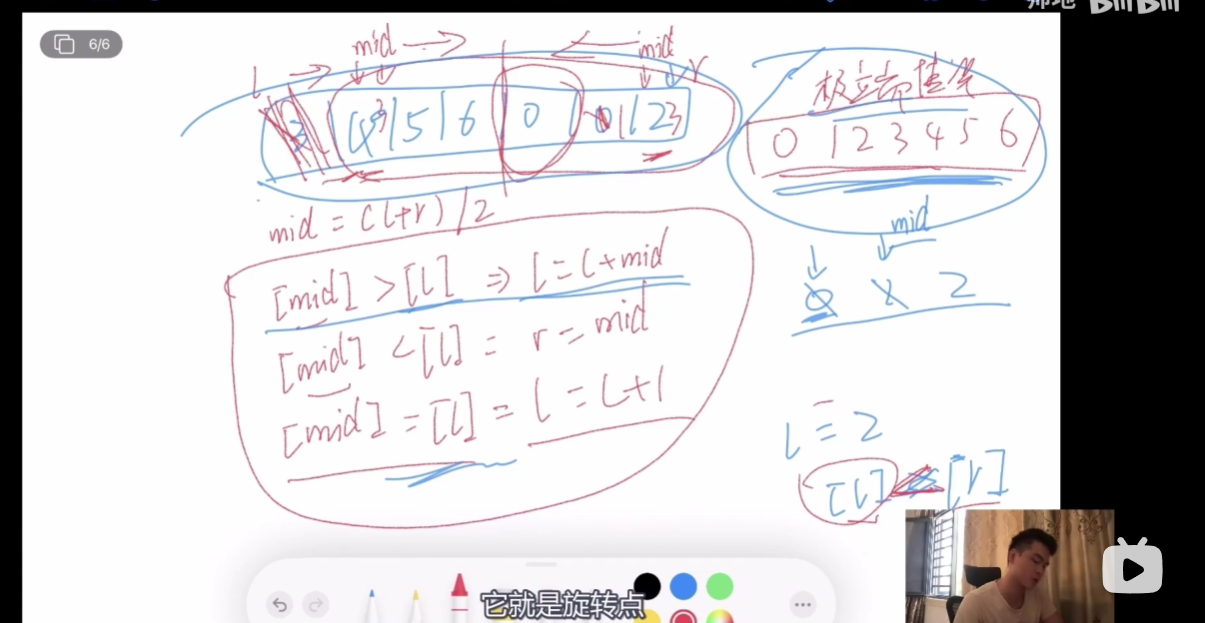 6/6
mid mid
l r
5 6 0 23
极端情况
0 1 2 3 4 5 6
mid = (l+r)/2
[mid] > [l] ⇒ l = l+mid
[mid] < [l] = r = mid
[mid] = [l] = l = l+1
mid
2
l = 2
[l] [r]
它就是旋转点